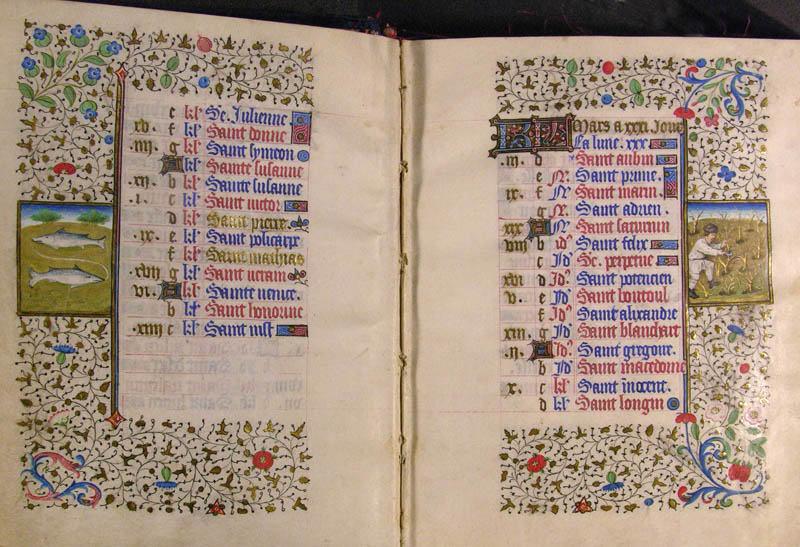 e kl' Se. Julienne.
xv. f kl' Saint donne
iiij. g kl' Saint symeon
A kl' Sainte susanne
xij. b kl' Sainte susanne
.i. c kl' Saint victor
d kl' Saint pierre.
.ix. e kl' Saint policarpe
f kl' Saint mathias
xvij g kl' Saint
vi. A kl' Sainte
b kl' Saint honorine
.xiiij c kl' Saint iust
KL Mars a xxxi. Jour
La lune. xxx.
.iii. d Saint aubin
e N'. Saint prime.
.ix. f N'. Saint marin.
g N'. Saint adrien.
xix A N'. Saint saturnin
viij b id' Saint felix
c Jd' Se. perpetue
xvi d Jd' Saint potencien
v. e Jd' Saint
f Jd' Saint alixandre
xiii. g Jd' Saint blanchart
.ii. A Jd' Saint gregoire.
b Jd' Saint macedoine
x. c kl' Saint inocent.
d kl' Saint longin